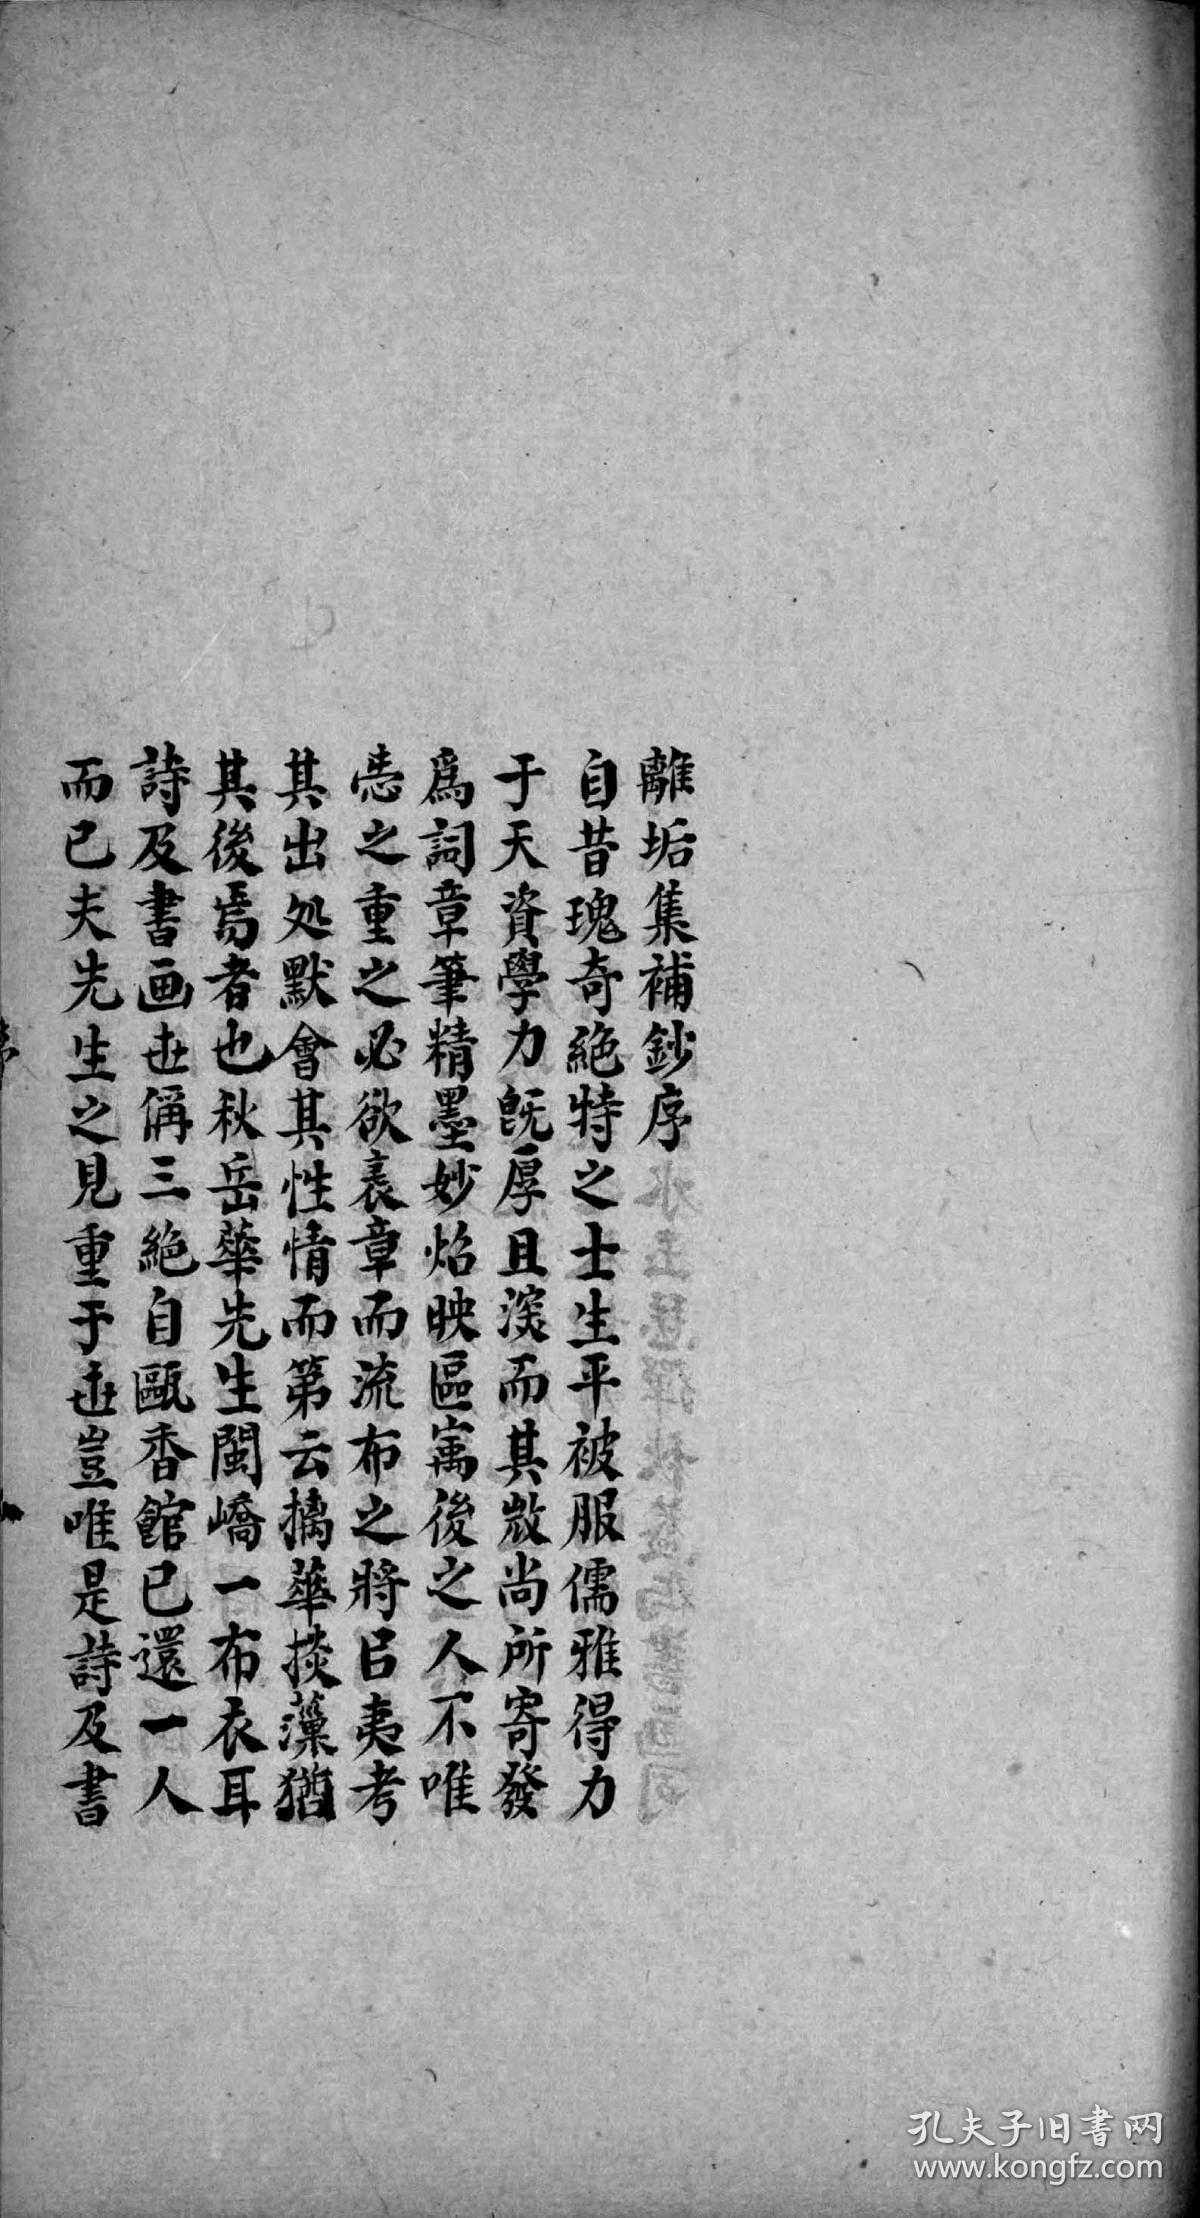 離垢集補鈔序
自昔瑰奇絕特之士生平被服儒雅得力
于天資學力旣厚且深而其微尚所寄發
爲詞章筆精墨妙炤映區寓後之人不唯
悉之重之必欲表章而流布之將㠯夷考
其出処默會其性情而第云摛華掞藻猶
其後焉者也秋岳華先生閩嶠一布衣耳
詩及書画世稱三絕自甌香館已還一人
而已夫先生之見重于世豈唯是詩及書
孔夫子旧书网
www.kongfz.com